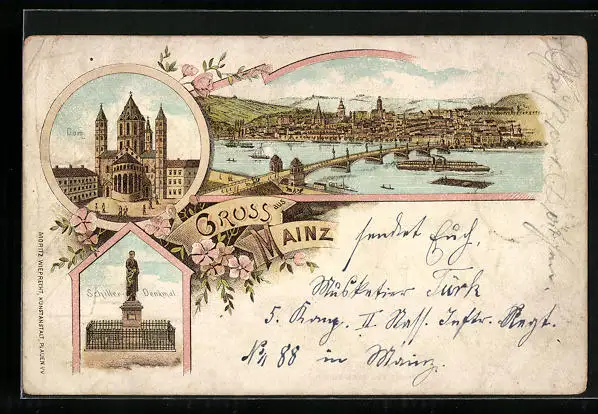 Dom.
GRUSS aus
MAINZ
Schiller-Denkmal
MORITZ WIEPRECHT, KUNSTANSTALT, PLAUEN i/V.
sendet Euch,
Musketier Türk
5. Komp. II Nass. Inftr. Regt.
No 88 in Mainz.